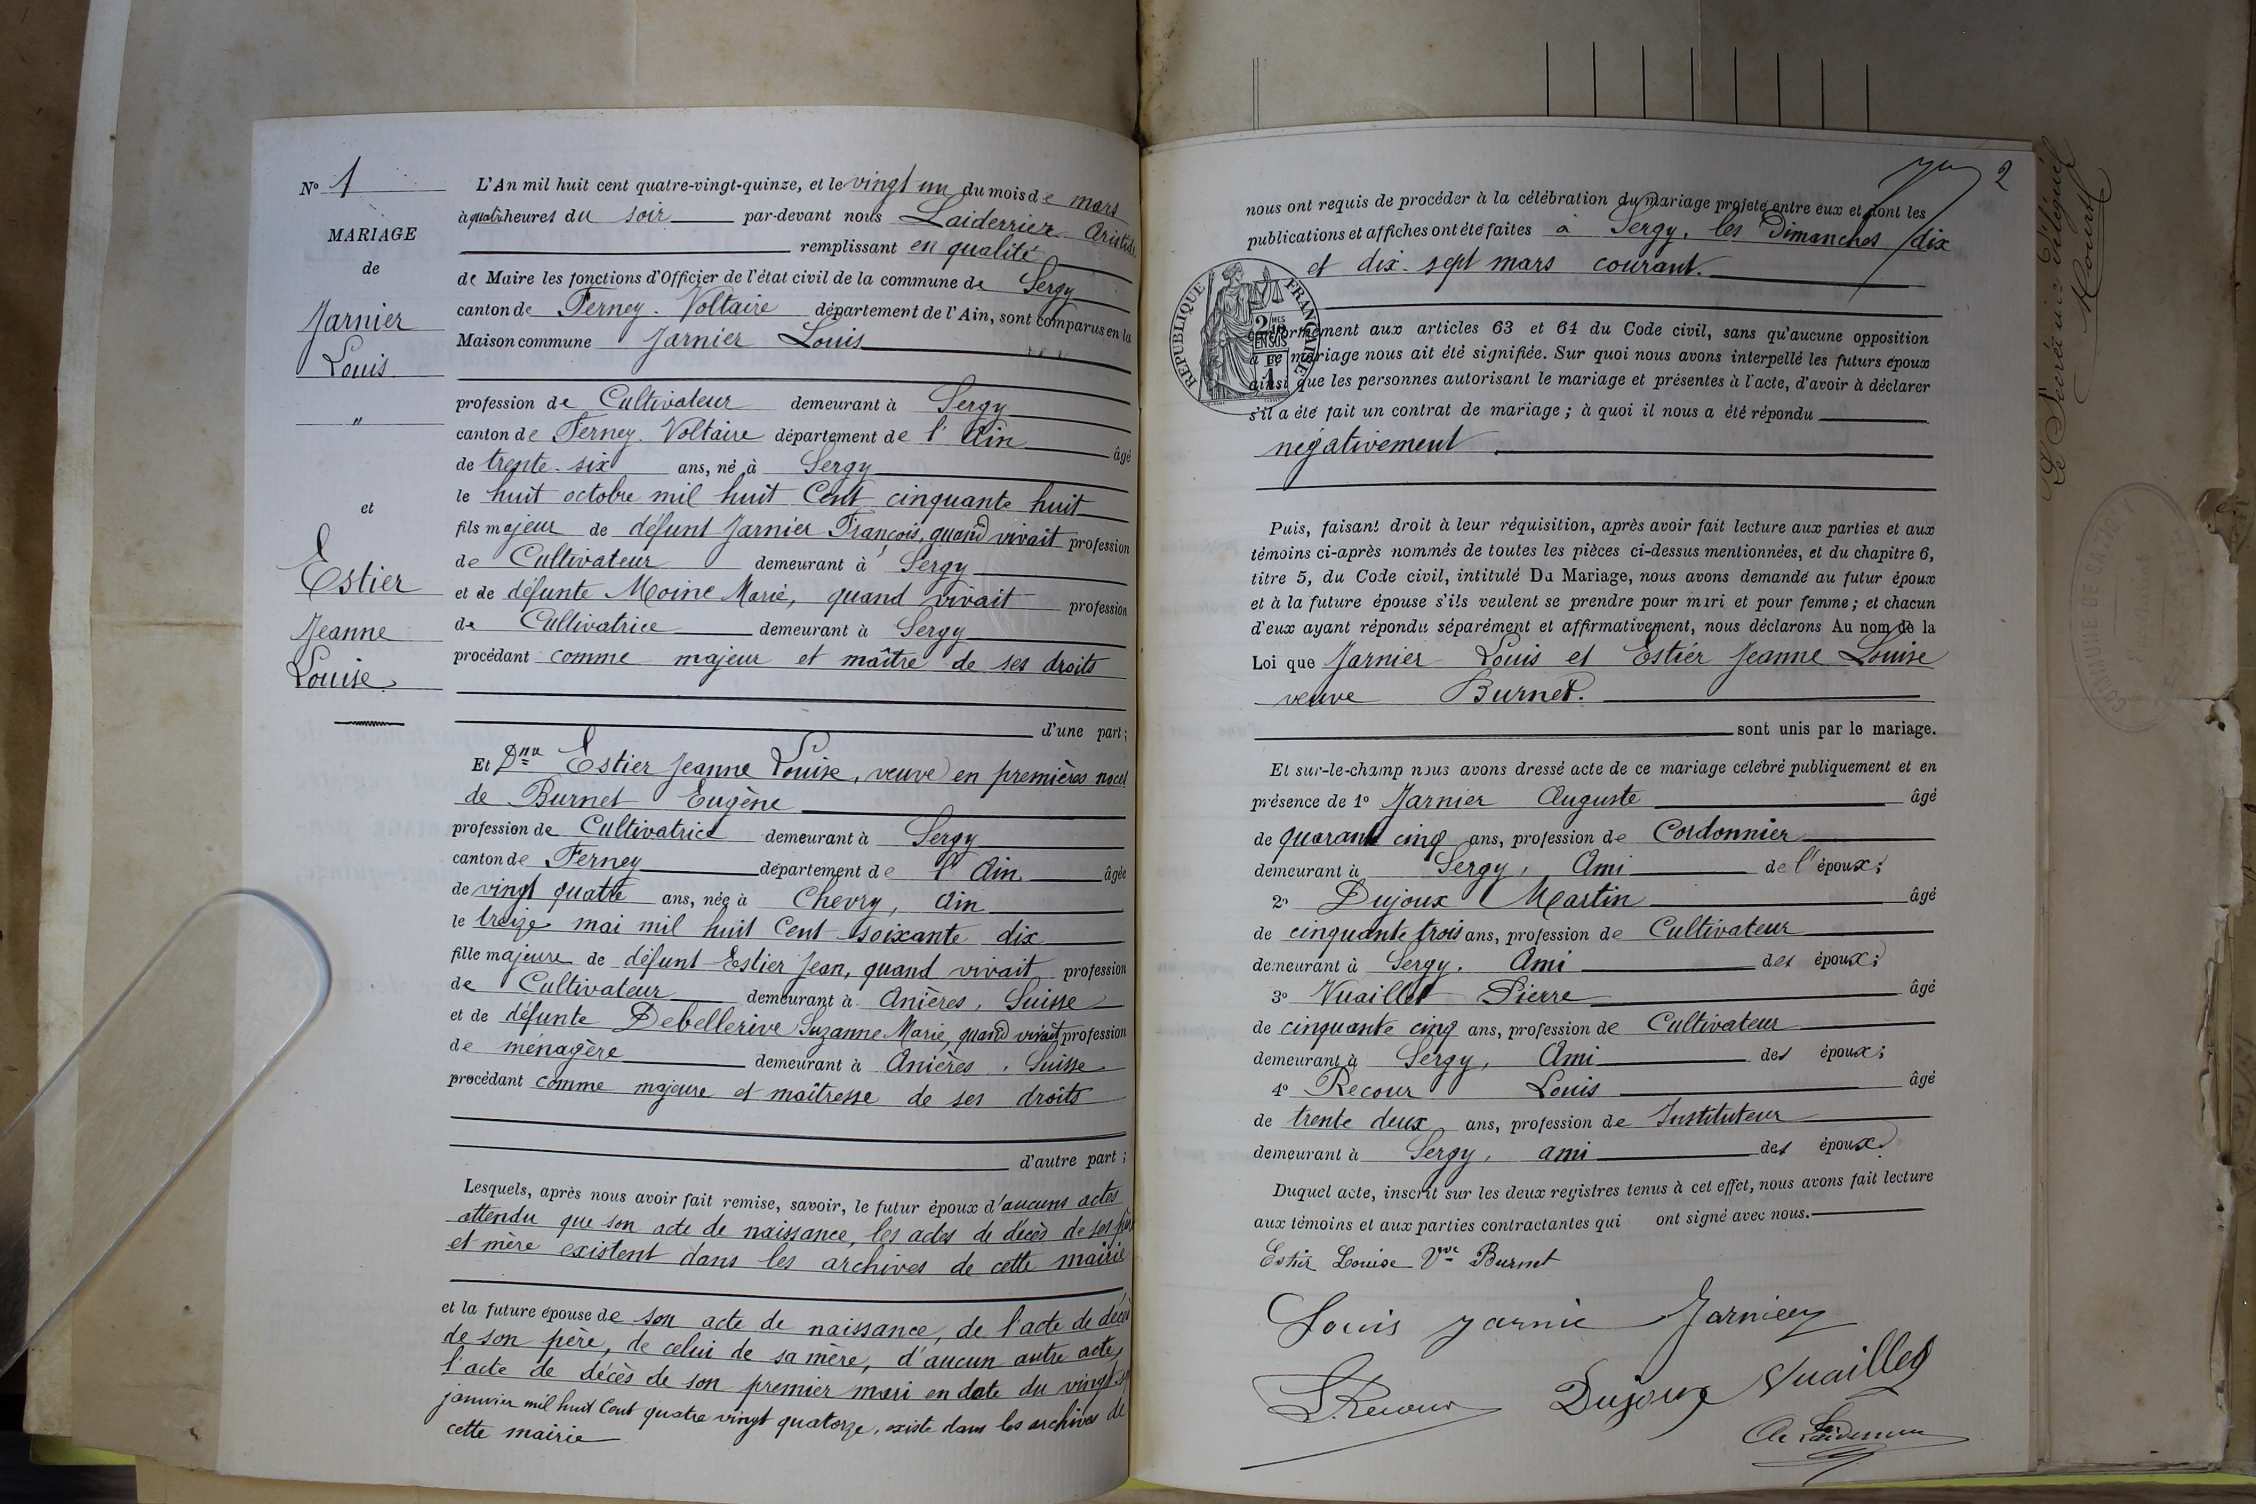 N° 1
MARIAGE
de
Jarnier
Louis
"
et
Estier
Jeanne
Louise
L'An mil huit cent quatre-vingt-quinze, et le vingt un du mois de mars
à quatre heures du soir par-devant nous Laiderrier Aristide
remplissant en qualité
de Maire les fonctions d'Officier de l'état civil de la commune de Sergy
canton de Ferney-Voltaire département de l'Ain, sont comparus en la
Maison commune Jarnier Louis
profession de Cultivateur demeurant à Sergy
canton de Ferney-Voltaire département de l'Ain âgé
de trente-six ans, né à Sergy
le huit octobre mil huit Cent cinquante huit
fils majeur de défunt Jarnier François, quand vivait profession
de Cultivateur demeurant à Sergy
et de défunte Moine Marie, quand vivait profession
de Cultivatrice demeurant à Sergy
procédant comme majeur et maître de ses droits
d'une part;
Et Dme Estier Jeanne Louise, veuve en premières noces
de Burnet Eugène
profession de Cultivatrice demeurant à Sergy
canton de Ferney département de l'Ain âgée
de vingt quatre ans, née à Chevry, Ain
le treize mai mil huit Cent soixante dix
fille majeure de défunt Estier Jean, quand vivait profession
de Cultivateur demeurant à Anières, Suisse
et de défunte Debellerive Suzanne Marie, quand vivait profession
de menagère demeurant à Anières, Suisse
procédant comme majeure et maîtresse de ses droits
d'autre part;
Lesquels, après nous avoir fait remise, savoir, le futur époux d'aucuns actes
attendu que son acte de naissance, les actes de décès de ses père
et mère existent dans les archives de cette mairie
et la future épouse de son acte de naissance, de l'acte de décès
de son père, de celui de sa mère, d'aucun autre acte,
l'acte de décès de son premier mari en date du vingt
janvier mil huit Cent quatre vingt quatorze, existe dans les archives de
cette mairie
2
nous ont requis de procéder à la célébration du mariage projeté entre eux et dont les
publications et affiches ont été faites à Sergy, les Dimanches dix
et dix-sept mars courant.
RÉPUBLIQUE FRANÇAISE
conformément aux articles 63 et 64 du Code civil, sans qu'aucune opposition
à ce mariage nous ait été signifiée. Sur quoi nous avons interpellé les futurs époux
ainsi que les personnes autorisant le mariage et présentes à l'acte, d'avoir à déclarer
s'il a été fait un contrat de mariage; à quoi il nous a été répondu
négativement
Puis, faisant droit à leur réquisition, après avoir fait lecture aux parties et aux
témoins ci-après nommés de toutes les pièces ci-dessus mentionnées, et du chapitre 6,
titre 5, du Code civil, intitulé Du Mariage, nous avons demandé au futur époux
et à la future épouse s'ils veulent se prendre pour mari et pour femme; et chacun
d'eux ayant répondu séparément et affirmativement, nous déclarons Au nom de la
Loi que Jarnier Louis et Estier Jeanne Louise
veuve Burnet.
sont unis par le mariage.
Et sur-le-champ nous avons dressé acte de ce mariage célébré publiquement et en
présence de 1° Jarnier Auguste âgé
de quarante cinq ans, profession de Cordonnier
demeurant à Sergy, Ami de l'époux;
2° Dujoux Martin âgé
de cinquante trois ans, profession de Cultivateur
demeurant à Sergy. Ami des époux;
3° Vuaillet Pierre âgé
de cinquante cinq ans, profession de Cultivateur
demeurant à Sergy, Ami des époux;
4° Recour Louis âgé
de trente deux ans, profession de Instituteur
demeurant à Sergy, ami des époux.
Duquel acte, inscrit sur les deux registres tenus à cet effet, nous avons fait lecture
aux témoins et aux parties contractantes qui ont signé avec nous.
Estier Louise Vve Burnet
Louis Jarnie Jarnier
L. Recour Dujoux Vuaillet